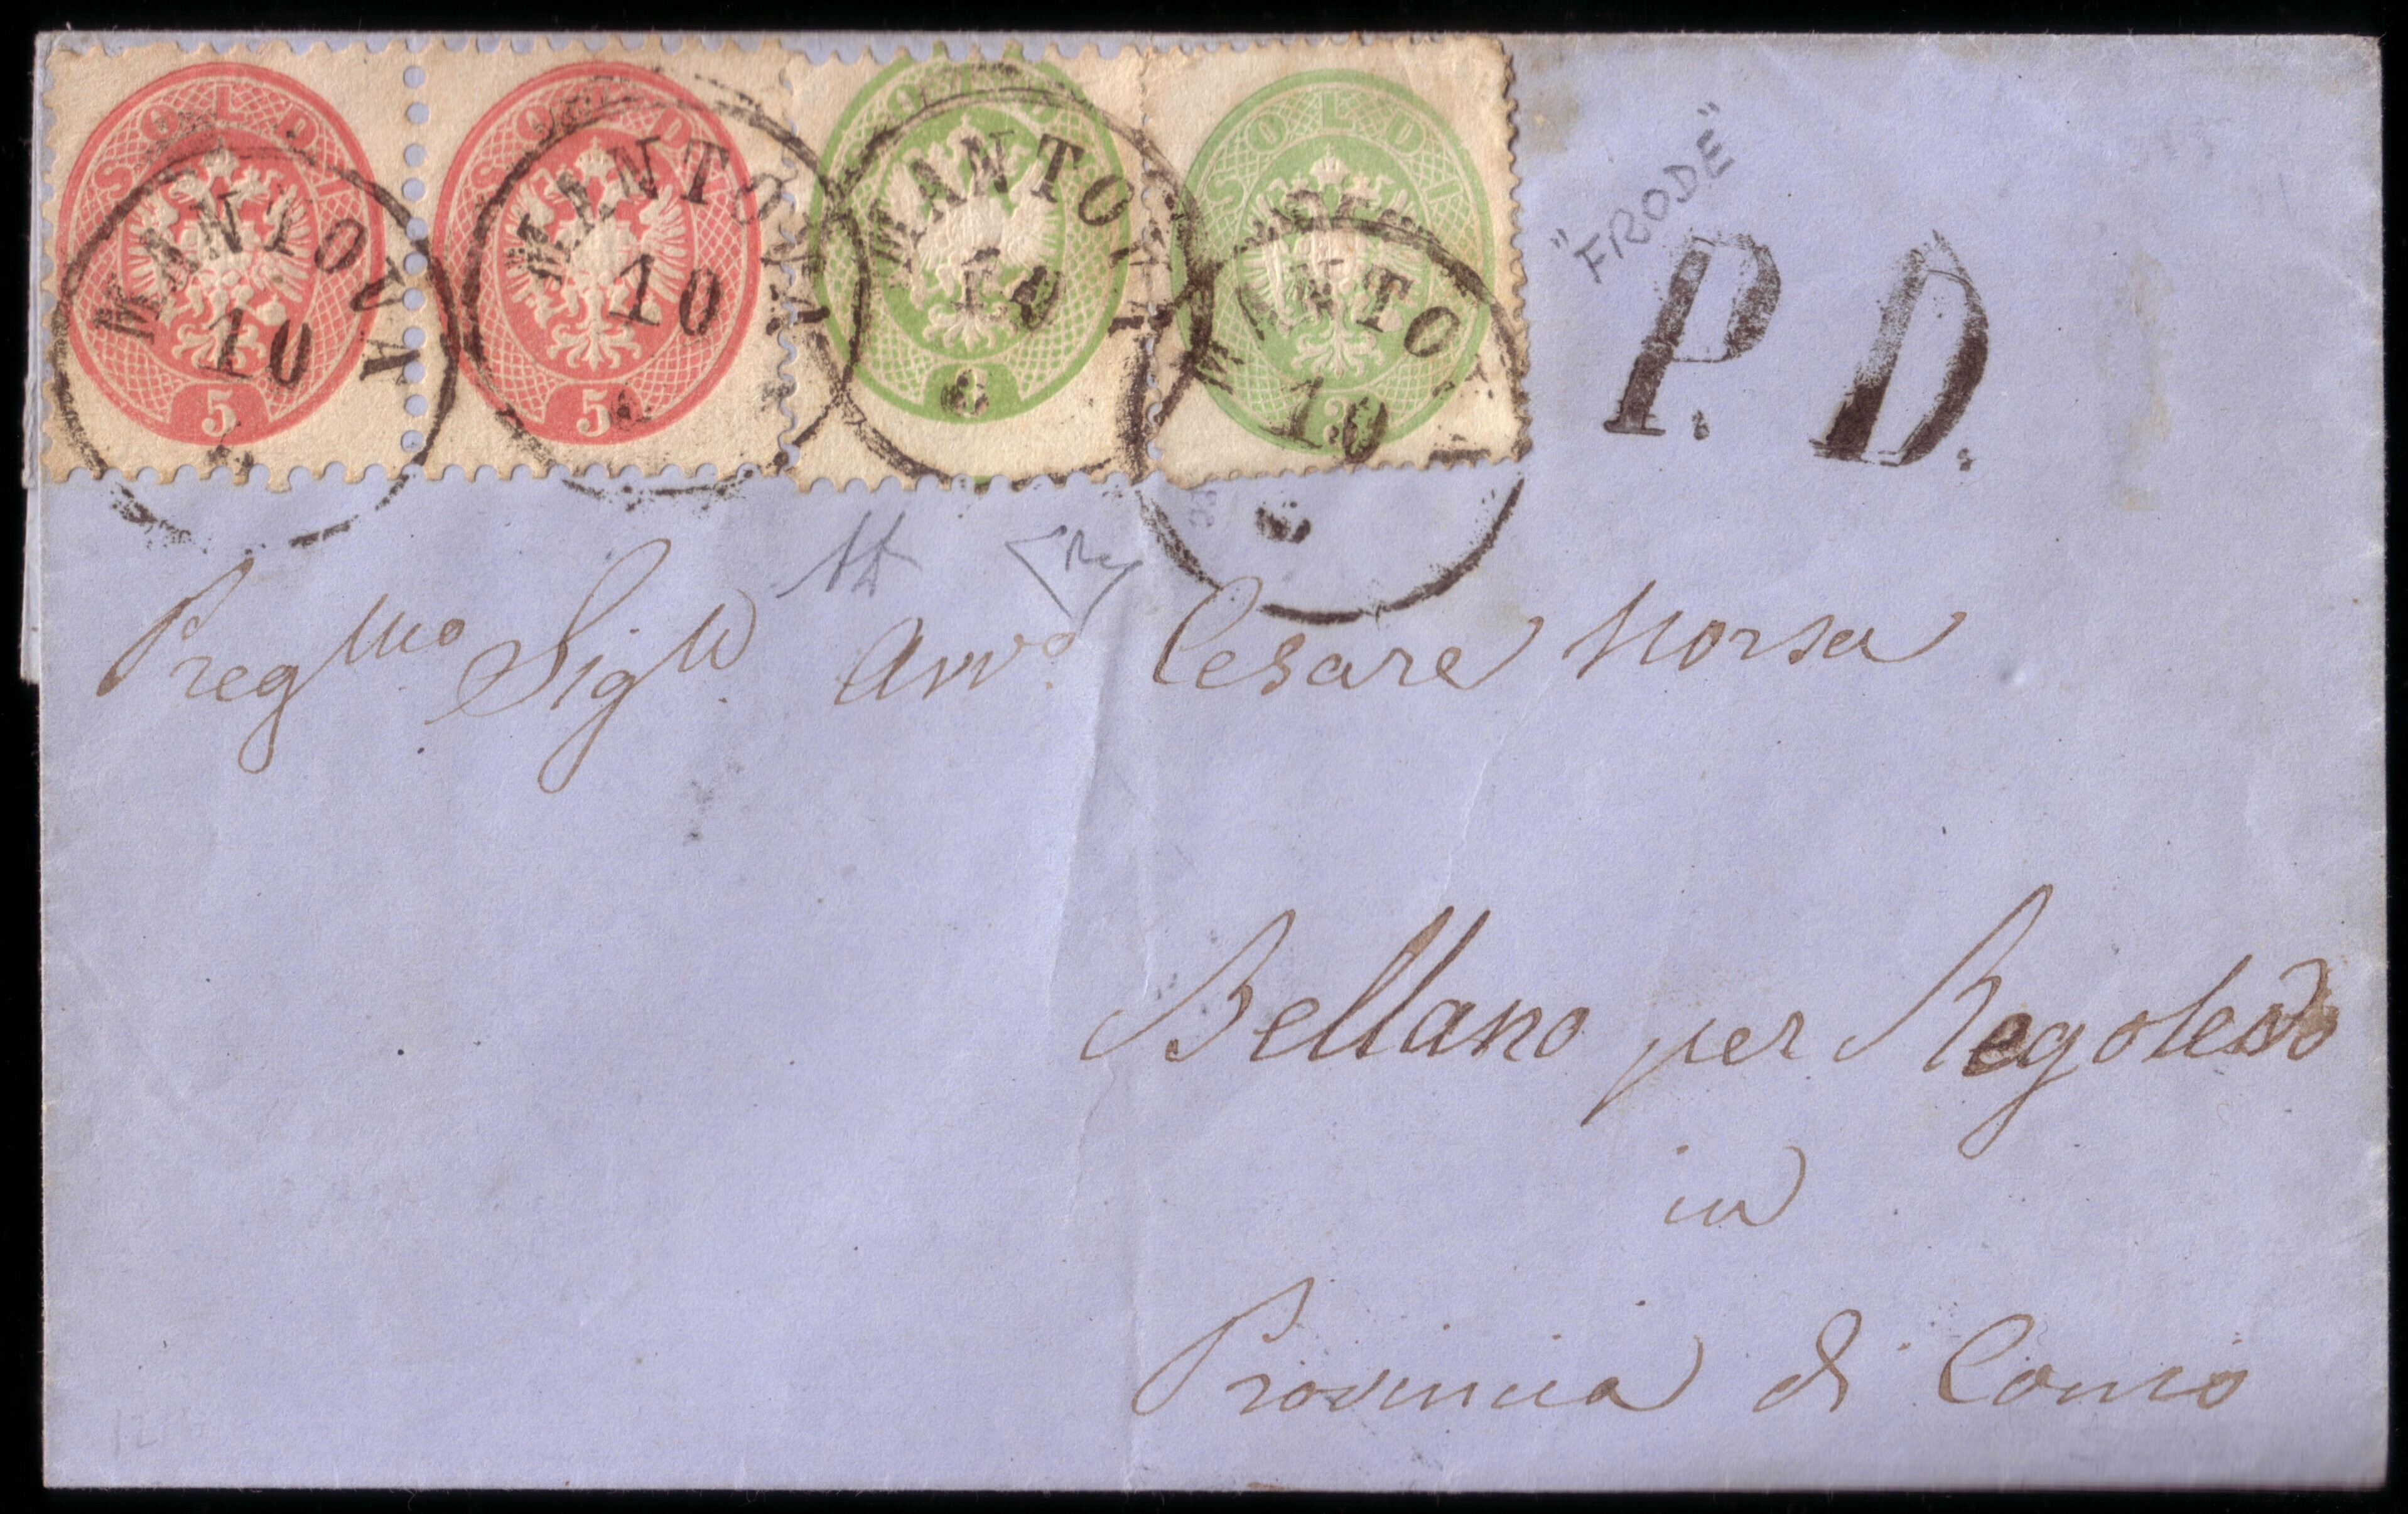 SOLDI SOLDI SOLDI SOLDI
MANTOVA MANTOVA MANTOVA MANTO
10 10 10 10
5 5 3 3
"FRODE"
P. D.
Pregmo Sigr Avvo Cesare Norsa
Bellano per Regoledo
in
Provincia di Como